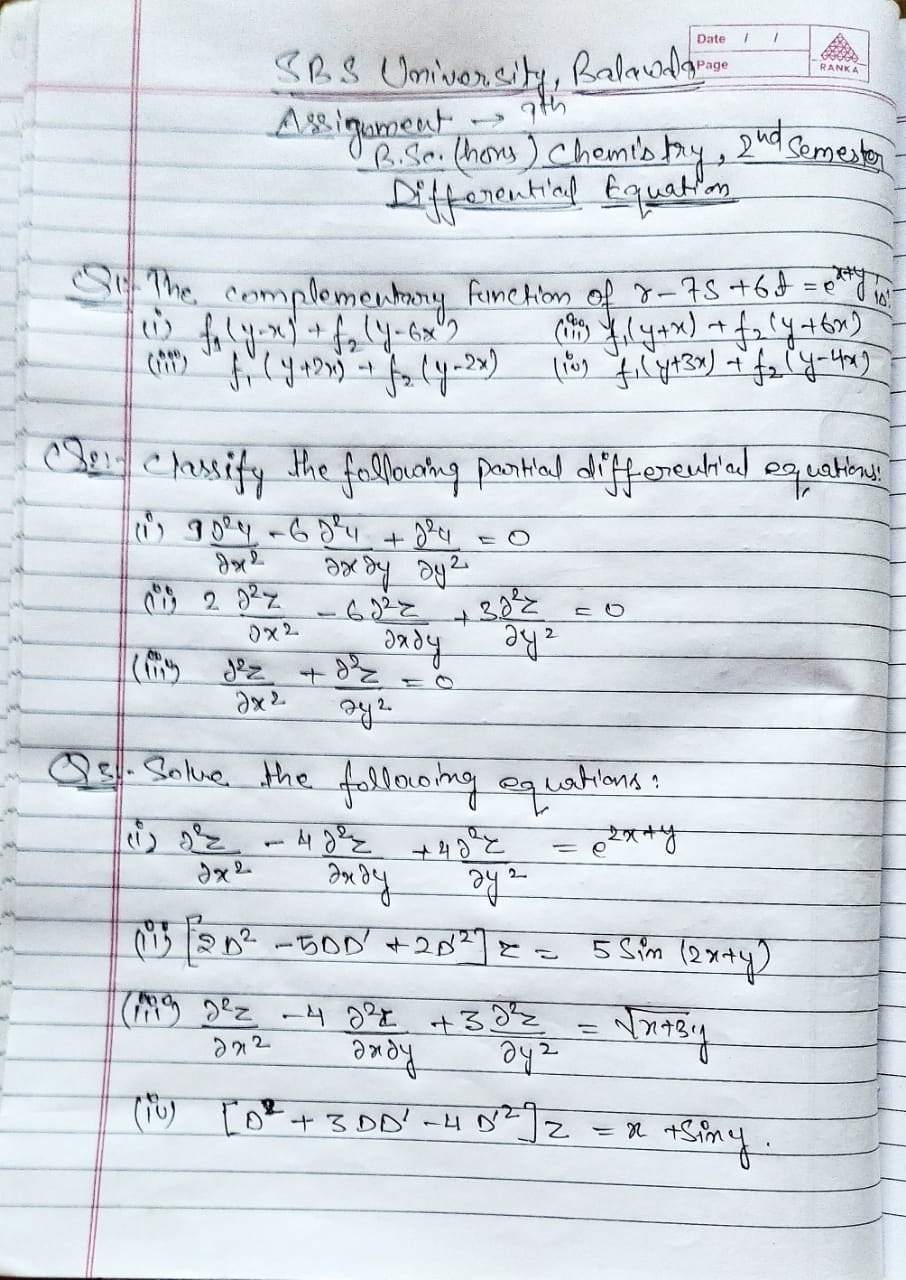 Date / /
Page
RANKA
SBS University,
Assignment → 9th
B.Sc. (hons) Chemistry, 2nd Semester
Differential Equation
Q1:- The complementary function of r-7s+6t = e^{x+y} is:
(i) f₁(y-x) + f₂(y-6x) (ii) f₁(y+x) + f₂(y+6x)
(iii) f₁(y+2x) + f₂(y-2x) (iv) f₁(y+3x) + f₂(y-4x)
Q2:- Classify the following partial differential equations:
(i) 9 ∂²u/∂x² - 6 ∂²u/∂x∂y + ∂²u/∂y² = 0
(ii) 2 ∂²z/∂x² - 6 ∂²z/∂x∂y + 3 ∂²z/∂y² = 0
(iii) ∂²z/∂x² + ∂²z/∂y² = 0
Q3:- Solve the following equations:
(i) ∂²z/∂x² - 4 ∂²z/∂x∂y + 4 ∂²z/∂y² = e^{2x+y}
(ii) [2D² - 5DD' + 2D'²] z = 5 Sin (2x+y)
(iii) ∂²z/∂x² - 4 ∂²z/∂x∂y + 3 ∂²z/∂y² = √x+3y
(iv) [D² + 3DD' - 4D'²] z = x + Sin y.